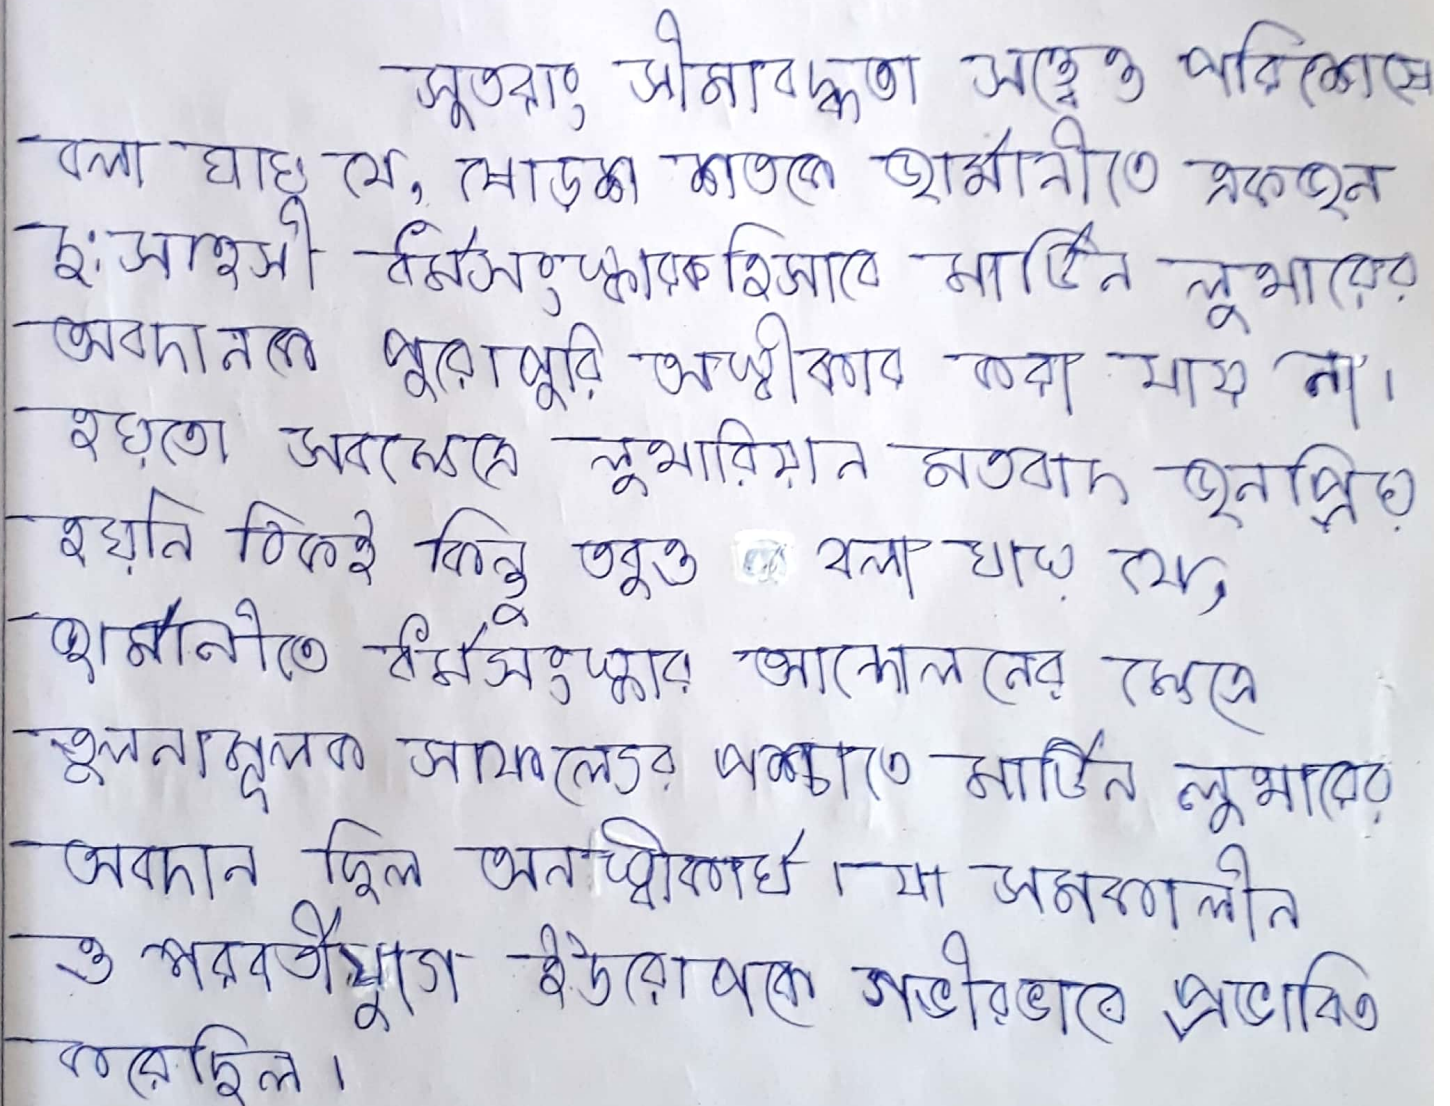 সুতরাং সীমাবদ্ধতা সত্ত্বেও পরিশেষে
বলা যায় যে, ষোড়শ শতকে জার্মানীতে একজন
দুঃসাহসী ধর্মসংস্কারক হিসাবে মার্টিন লুথারের
অবদানকে পুরোপুরি অস্বীকার করা যায় না।
হয়তো সবক্ষেত্রে লুথারিয়ান মতবাদ জনপ্রিয়
হয়নি ঠিকই কিন্তু তবুও বলা যায় যে,
জার্মানীতে ধর্মসংস্কার আন্দোলনের ক্ষেত্রে
তুলনামূলক সাফল্যের পশ্চাতে মার্টিন লুথারের
অবদান ছিল অনস্বীকার্য। যা সমকালীন
ও পরবর্তীযুগে ইউরোপকে গভীরভাবে প্রভাবিত
করেছিল।